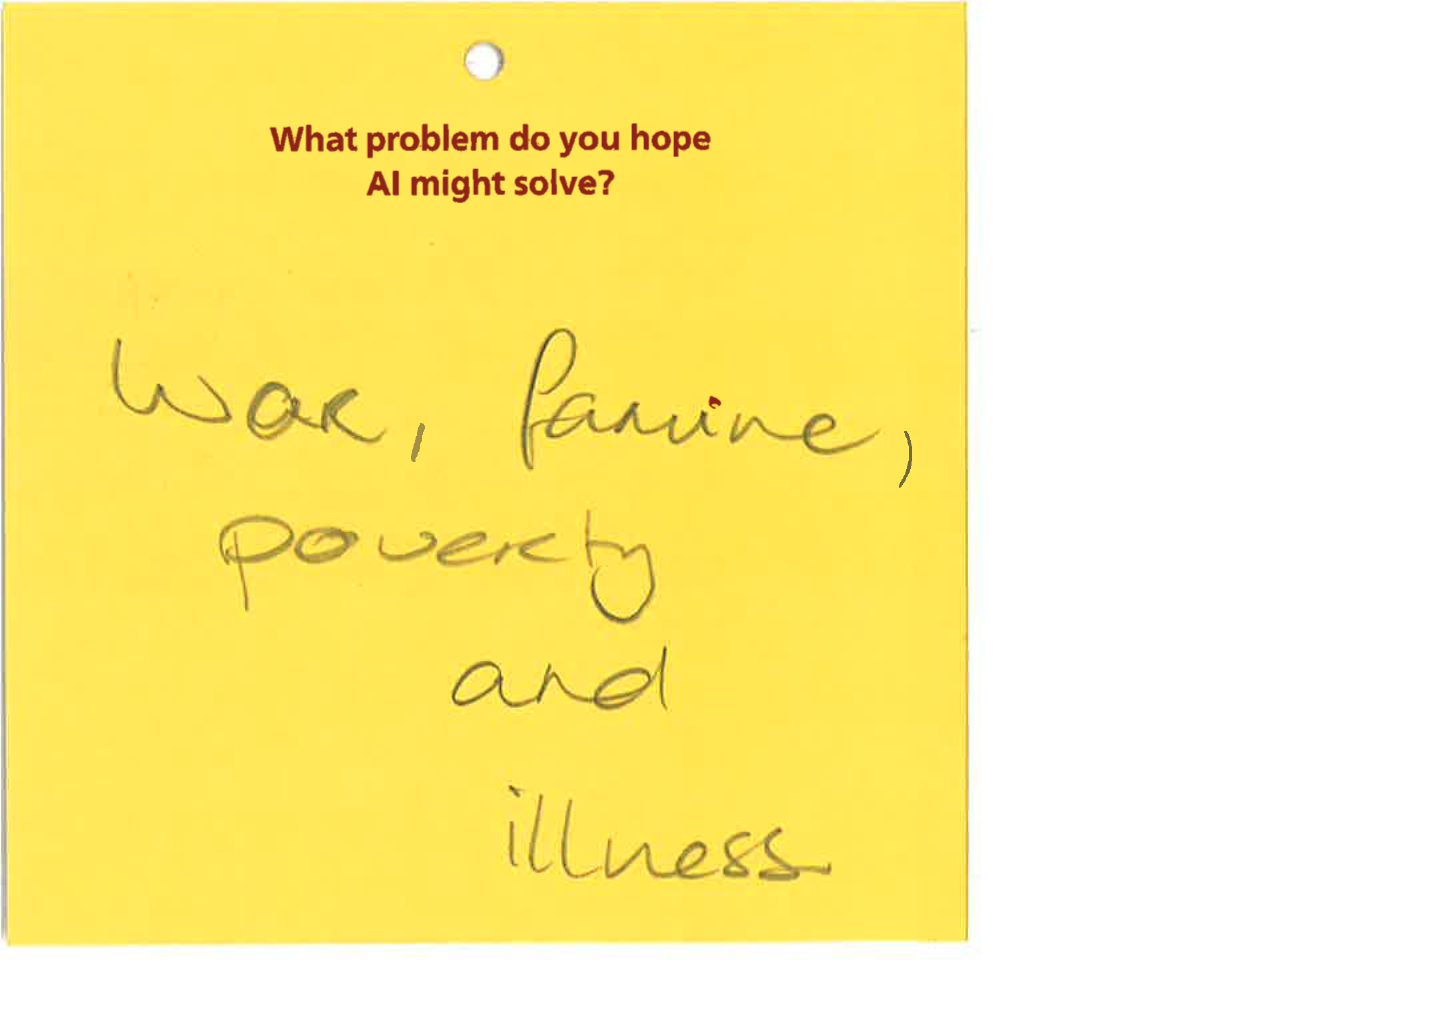 What problem do you hope
AI might solve?
War, famine,
poverty
and
illness